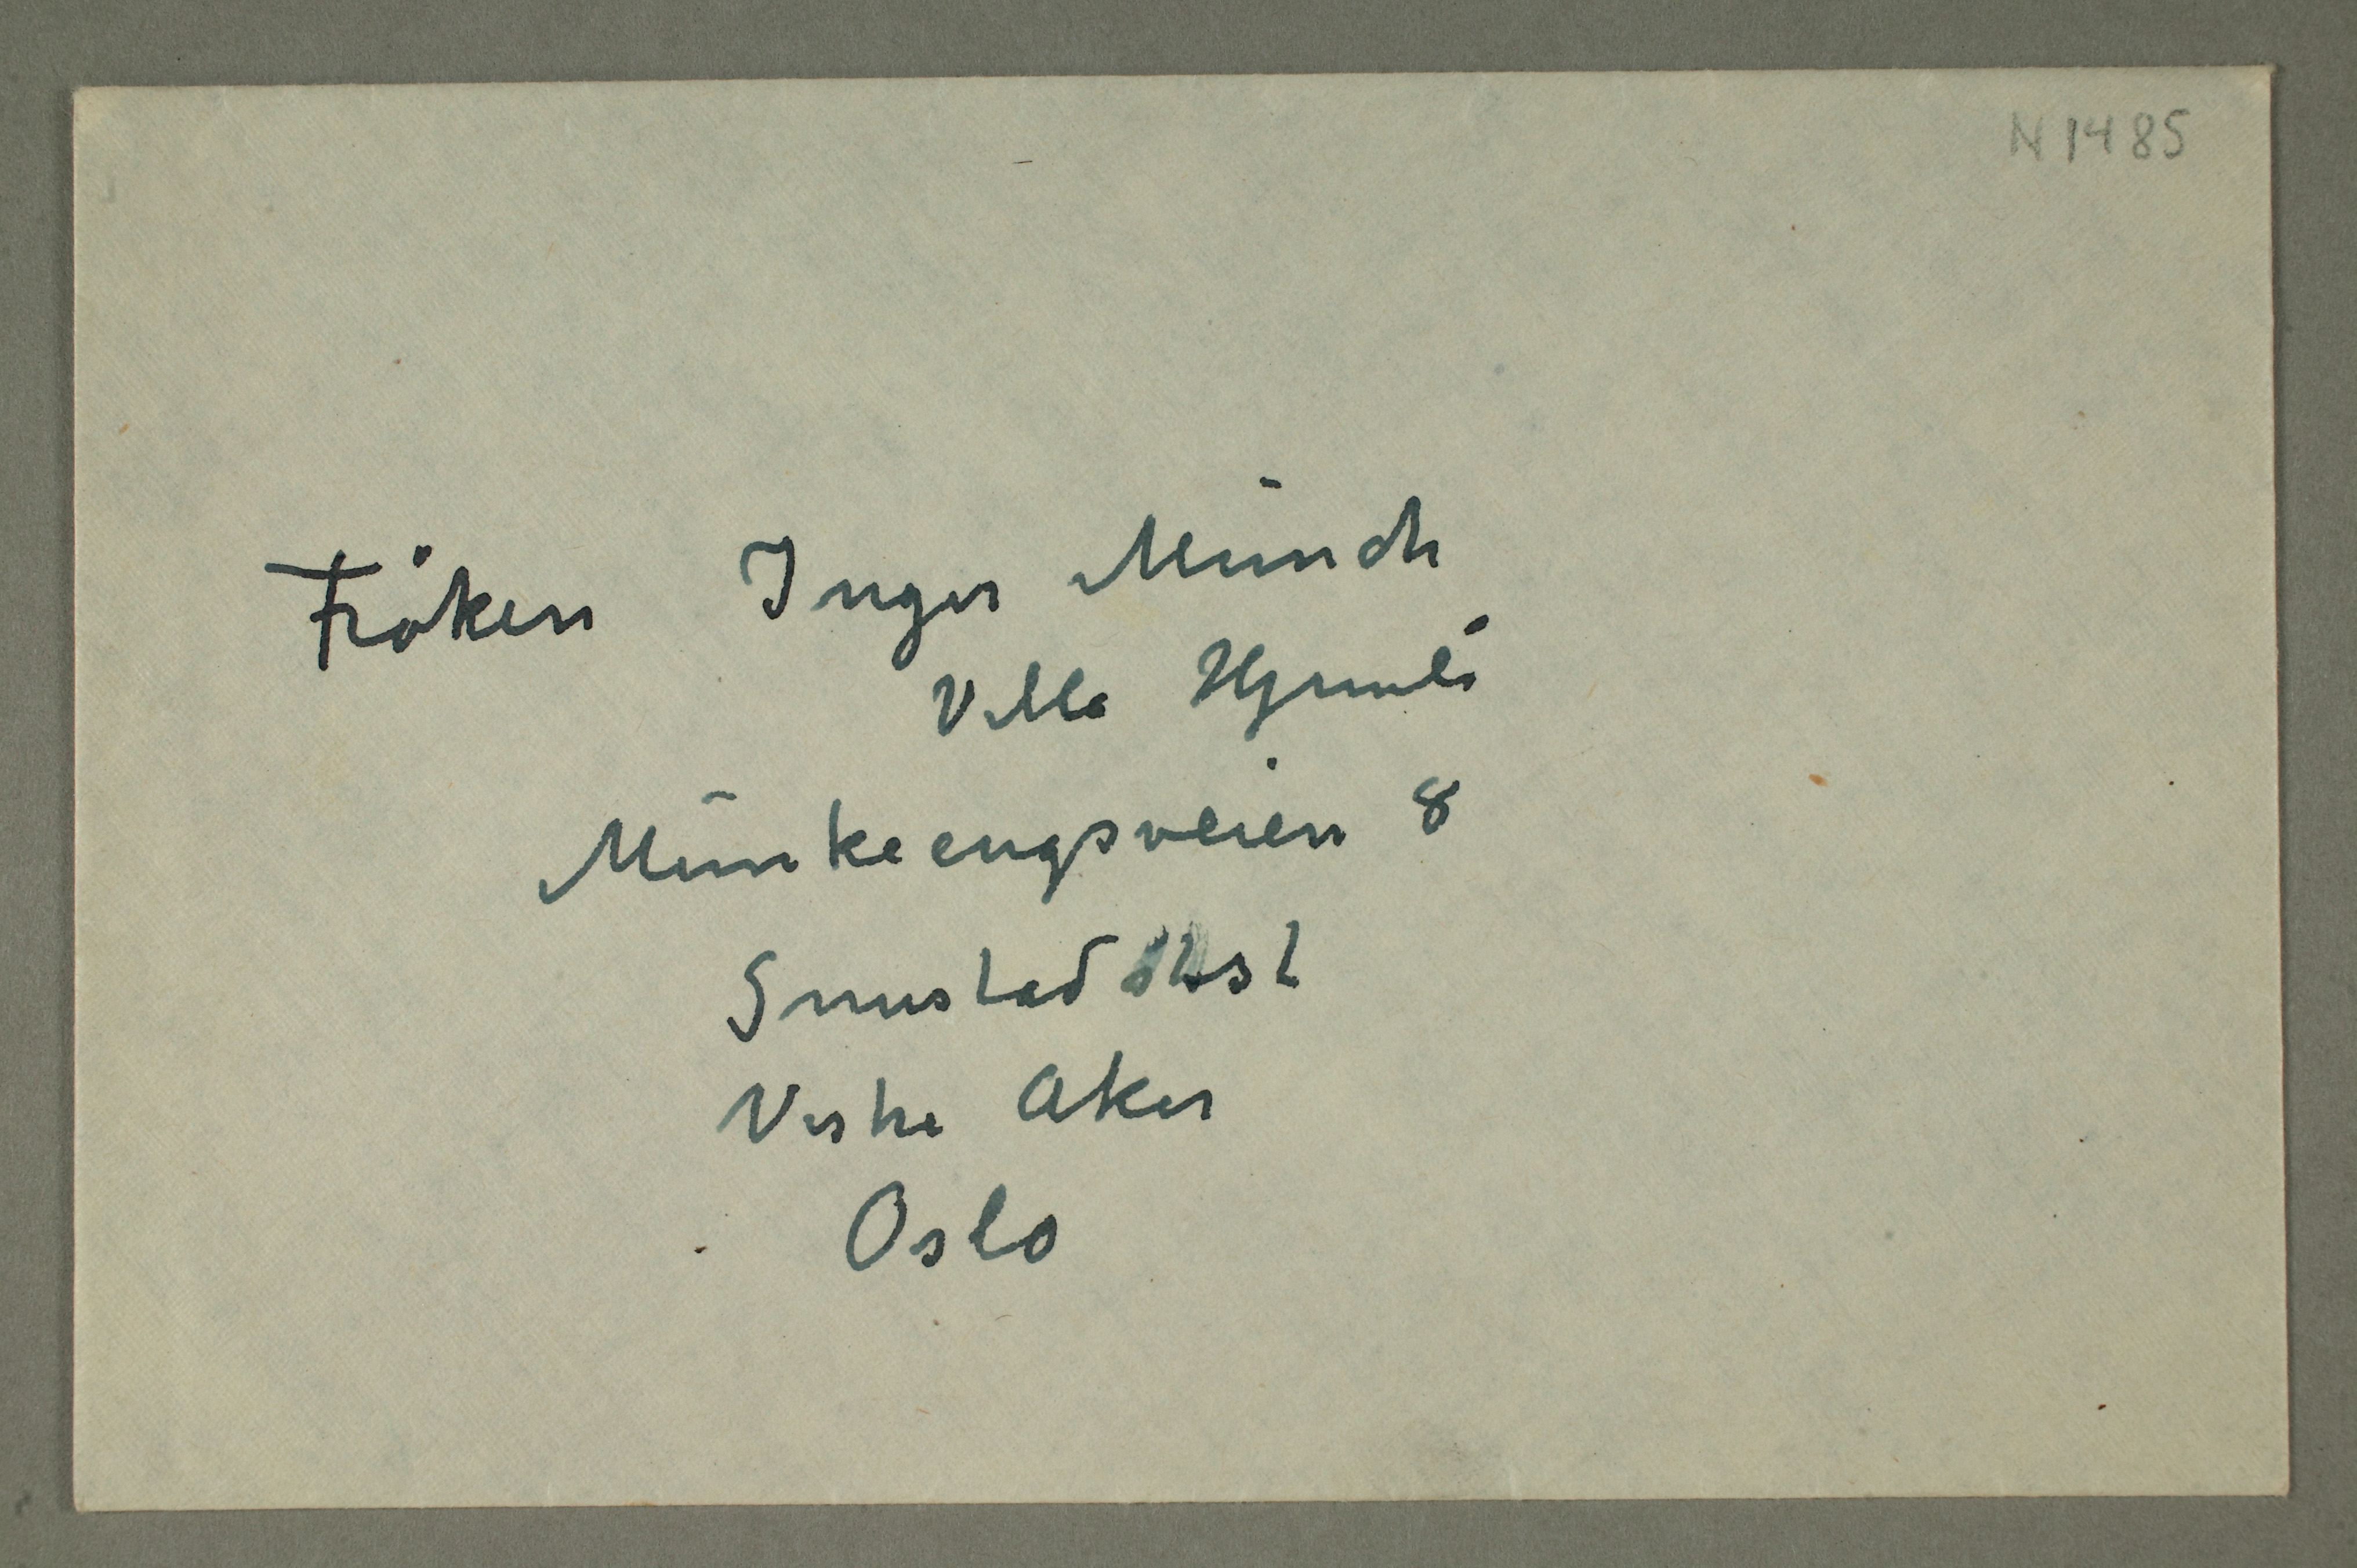 N 1485
Fröken Inger Munch
Villa
Munkeengsveien 8
Smestad st
Vestre Aker
Oslo